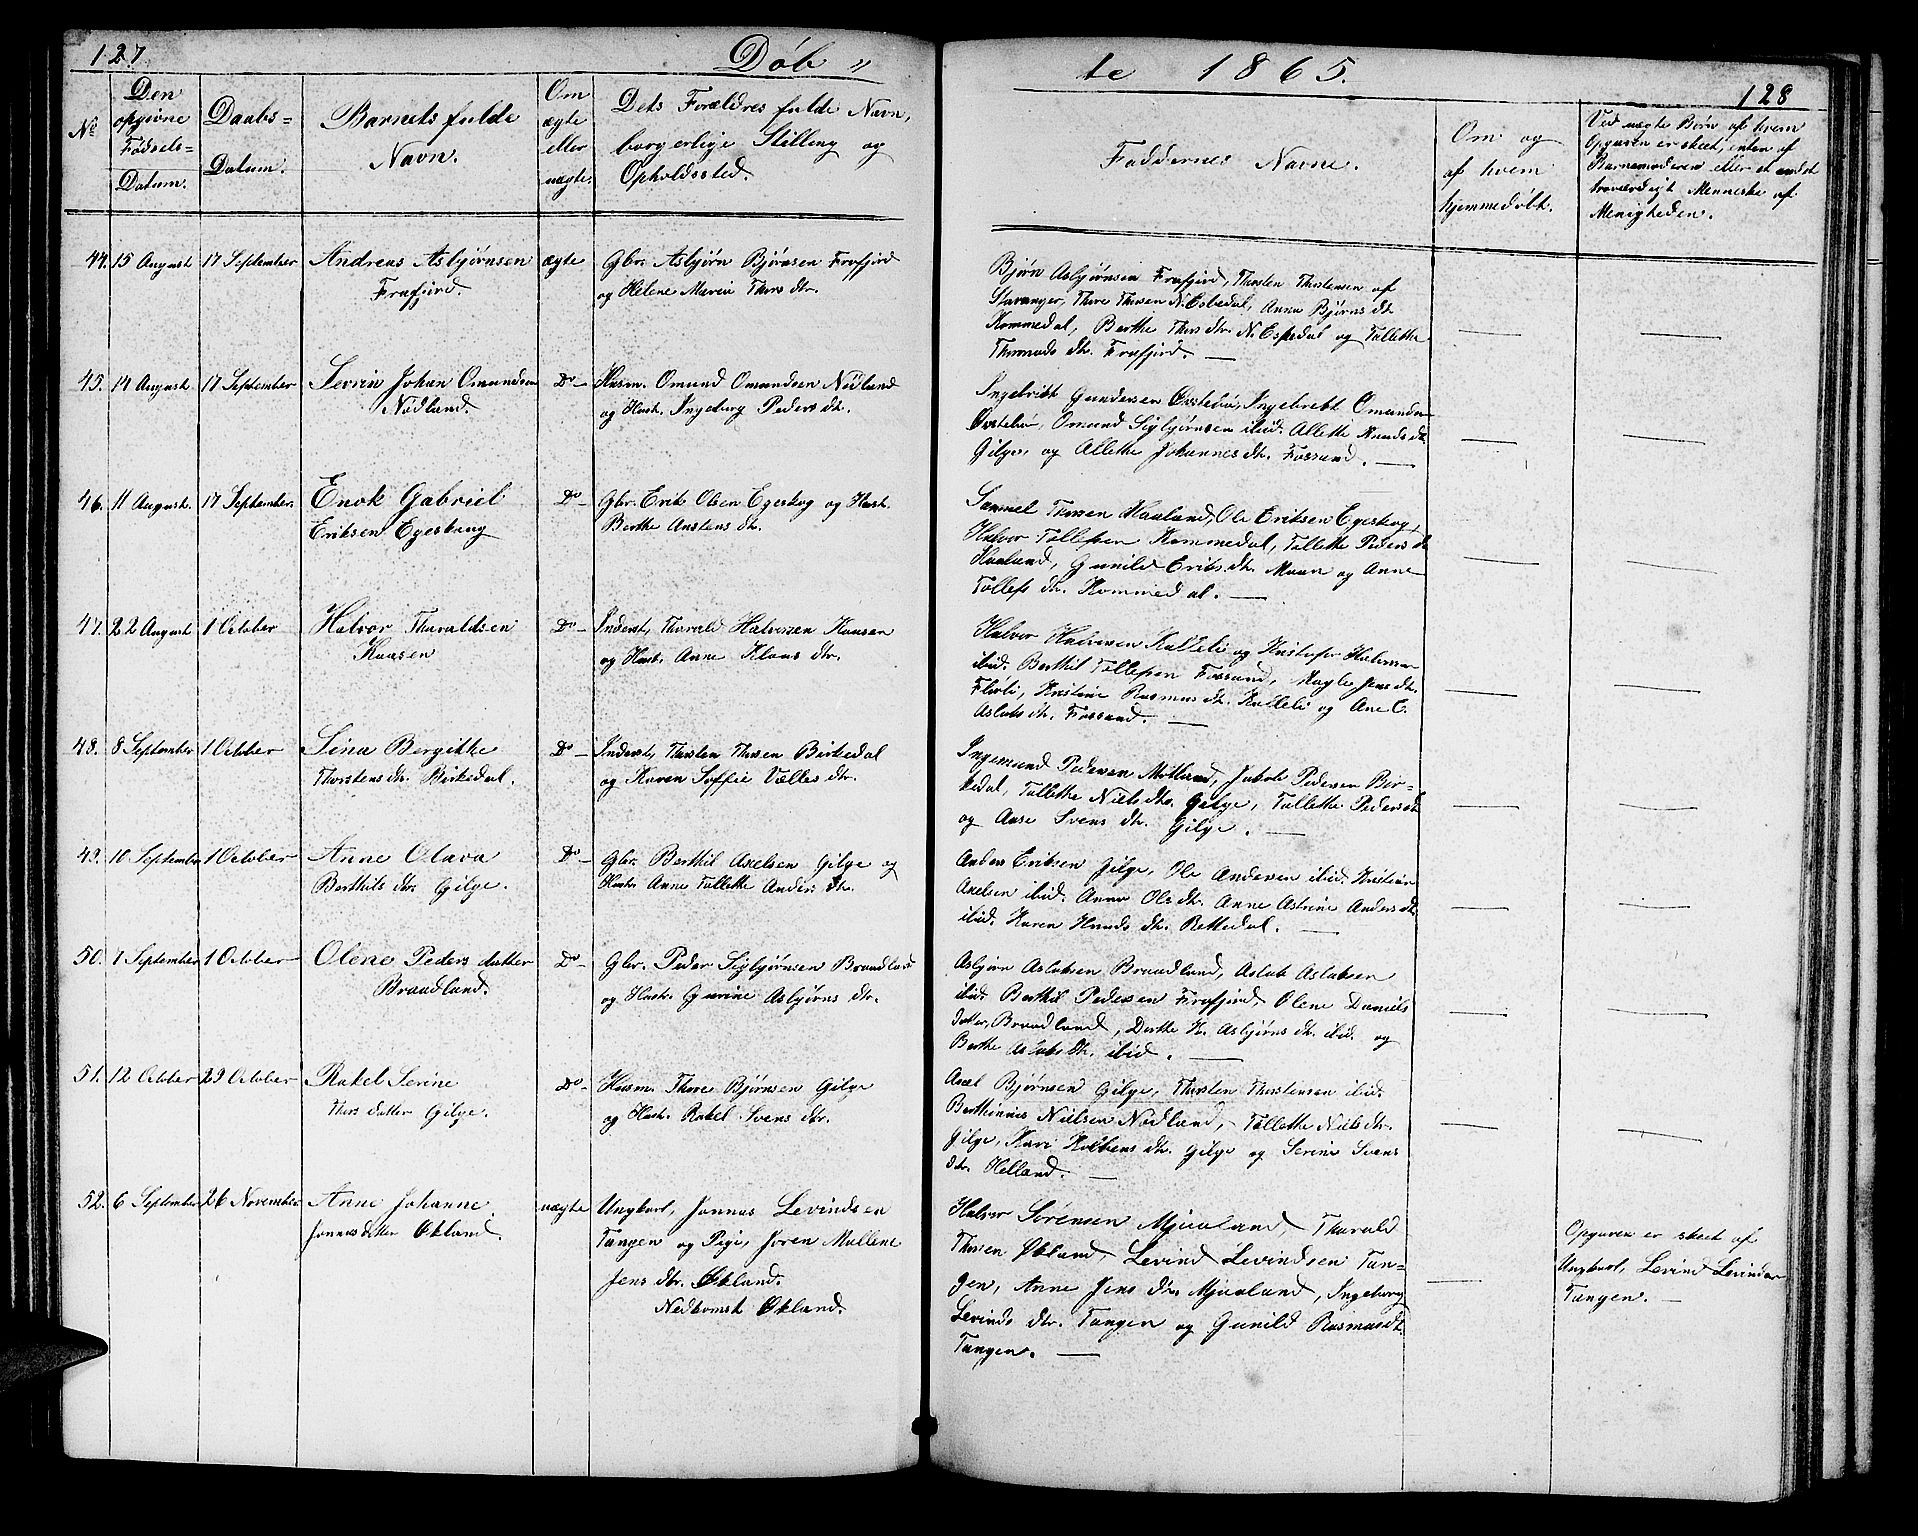 127
Døb "
te 1865.
128
No
Den opgivne Fødsels= Datum.
Daabs= Datum.
Barnets fulde Navn.
Om ægte eller uægte.
Dets Forældres fulde Navn, borgerlige Stilling og Opholdssted.
Faddernes Navne.
Om og af hvem hjemmedøbt.
Ved uægte Børn af hvem Opgaven er skeet, enten af Barnemoderen eller et andet troværdigt Menneske af Menigheden.
44. 15 August 17 September Andreas Asbjørnsen ægte Gbr. Asbjørn Bjørnsen Frafjord
Frafjord. og Helene Marie Thors dtr.
Bjørn Asbjørnsen Frafjord, Thorsten Thorstensen af
Stavanger, Thore Thorsen N. Esbedal, Anna Bjørns dt.
Kommedal, Berthe Thors dtr. N. Espedal og Tollette
Thormods dt. Frafjord. —
45. 14 August 17 September Sevrin Johan Omundsen Do — Husm. Omund Omundsen Nødland
Nødland. og Hust. Ingeborg Peders dt.
Ingebrikt Gundersen Østebø, Ingebrekt Omundsen
Østebø, Omund Sigbjørnsen ibid. Allette Knuds dt.
Gilge, og Allette Johannes dt. Fossand. —
46. 11 August 17 September. Enok Gabriel Do — Gbr. Erik Olsen Egeskog og Hust.
Eriksen Egeskog Berthe Anstens dt.
Sammel Thorsen Haaland, Ole Eriksen Egeskog,
Halvor Tollefsen Kommedal, Tollette Peders dt.
Haaland, Gunild Eriks dt. Maan og Anne
Tollefs dt. Kommedal. —
47. 22 August 1 October Halvor Thoraldsen Do — Inderst, Thorald Halvorsen Kaasen
Kaasen og Hust. Anne Klaus dtr.
Halvor Halvorsen Kalleli og Kristofer Halvorsen
ibid. Berthil Tollefsen Fossand, Magle Jens dt.
Flørli, Kristine Rasmus dt. Kalleli og Ane C.
Aslaks dt. Fossand. —
48. 8 September 1 October Sina Bergitte Do — Inderst, Thorsten Thorsen Birkedal
Thorstens dt. Birkedal. og Karen Soffie Valles dtr.
Ingemund Pedersen Motland, Jakob Pedersen Ber=
kedal, Tollette Niels dtr. Gilge, Tollette Peders dt.
og Aase Svens dt. Gilge. —
49. 10 September 1 October Anne Olava Do — Gbr. Berthil Axelsen Gilge og
Berthils dtr. Gilge. Hust. Anne Tollette Anders dt.
Anders Eriksen Gilge, Ole Andersen ibid. Kristian
Axelsen ibid. Anna Ols dt. Anne Astrine Anders dt.
ibid. Karen Knuds dt. Rettedal. —
50. 7 September 1 October Olene Peders datter Do — Gbr. Peder Sigbjørnsen Braadland
Braadland. og Hust. Gurine Asbjørns dtr.
Asbjørn Aslaksen Braadland, Aslak Aslaksen
ibid. Berthil Pedersen Frafjord, Olene Daniels
datter, Braadland, Dorthe K. Asbjørns dt. ibid. og
Berthe Aslaks dt. ibid. —
51. 12 October 29 October Rakel Serine Do — Husm. Thore Bjørnsen Gilge
Thors datter Gilge. og Hust. Rakel Svens dtr.
Axel Bjørnsen Gilge, Thorsten Thorstensen ibid.
Berthinnis Nielsen Nødland, Tollette Niels dtr.
Gilge, Kari Kolbens dt. Gilge og Serine Svens
dt. Helland. —
52. 6 September 26 November Anne Johanne uægte Ungkarl, Jonnas Levindsen
Jonnas datter Økland. Tangen og Pige, Joren Mallene
Jens dtr. Økland.
Nedkomst Økland.
Halvor Sørensen Mjaaland, Thorald
Thorsen Økland, Levind Levindsen Tan=
gen, Anne Jens dtr. Mjaaland, Ingeborg
Levinds dtr. Tangen og Gunild Rasmus dt.
Tangen. —
Opgaven er skeet af
Ungkarl, Levind Levindsen
Tangen. —